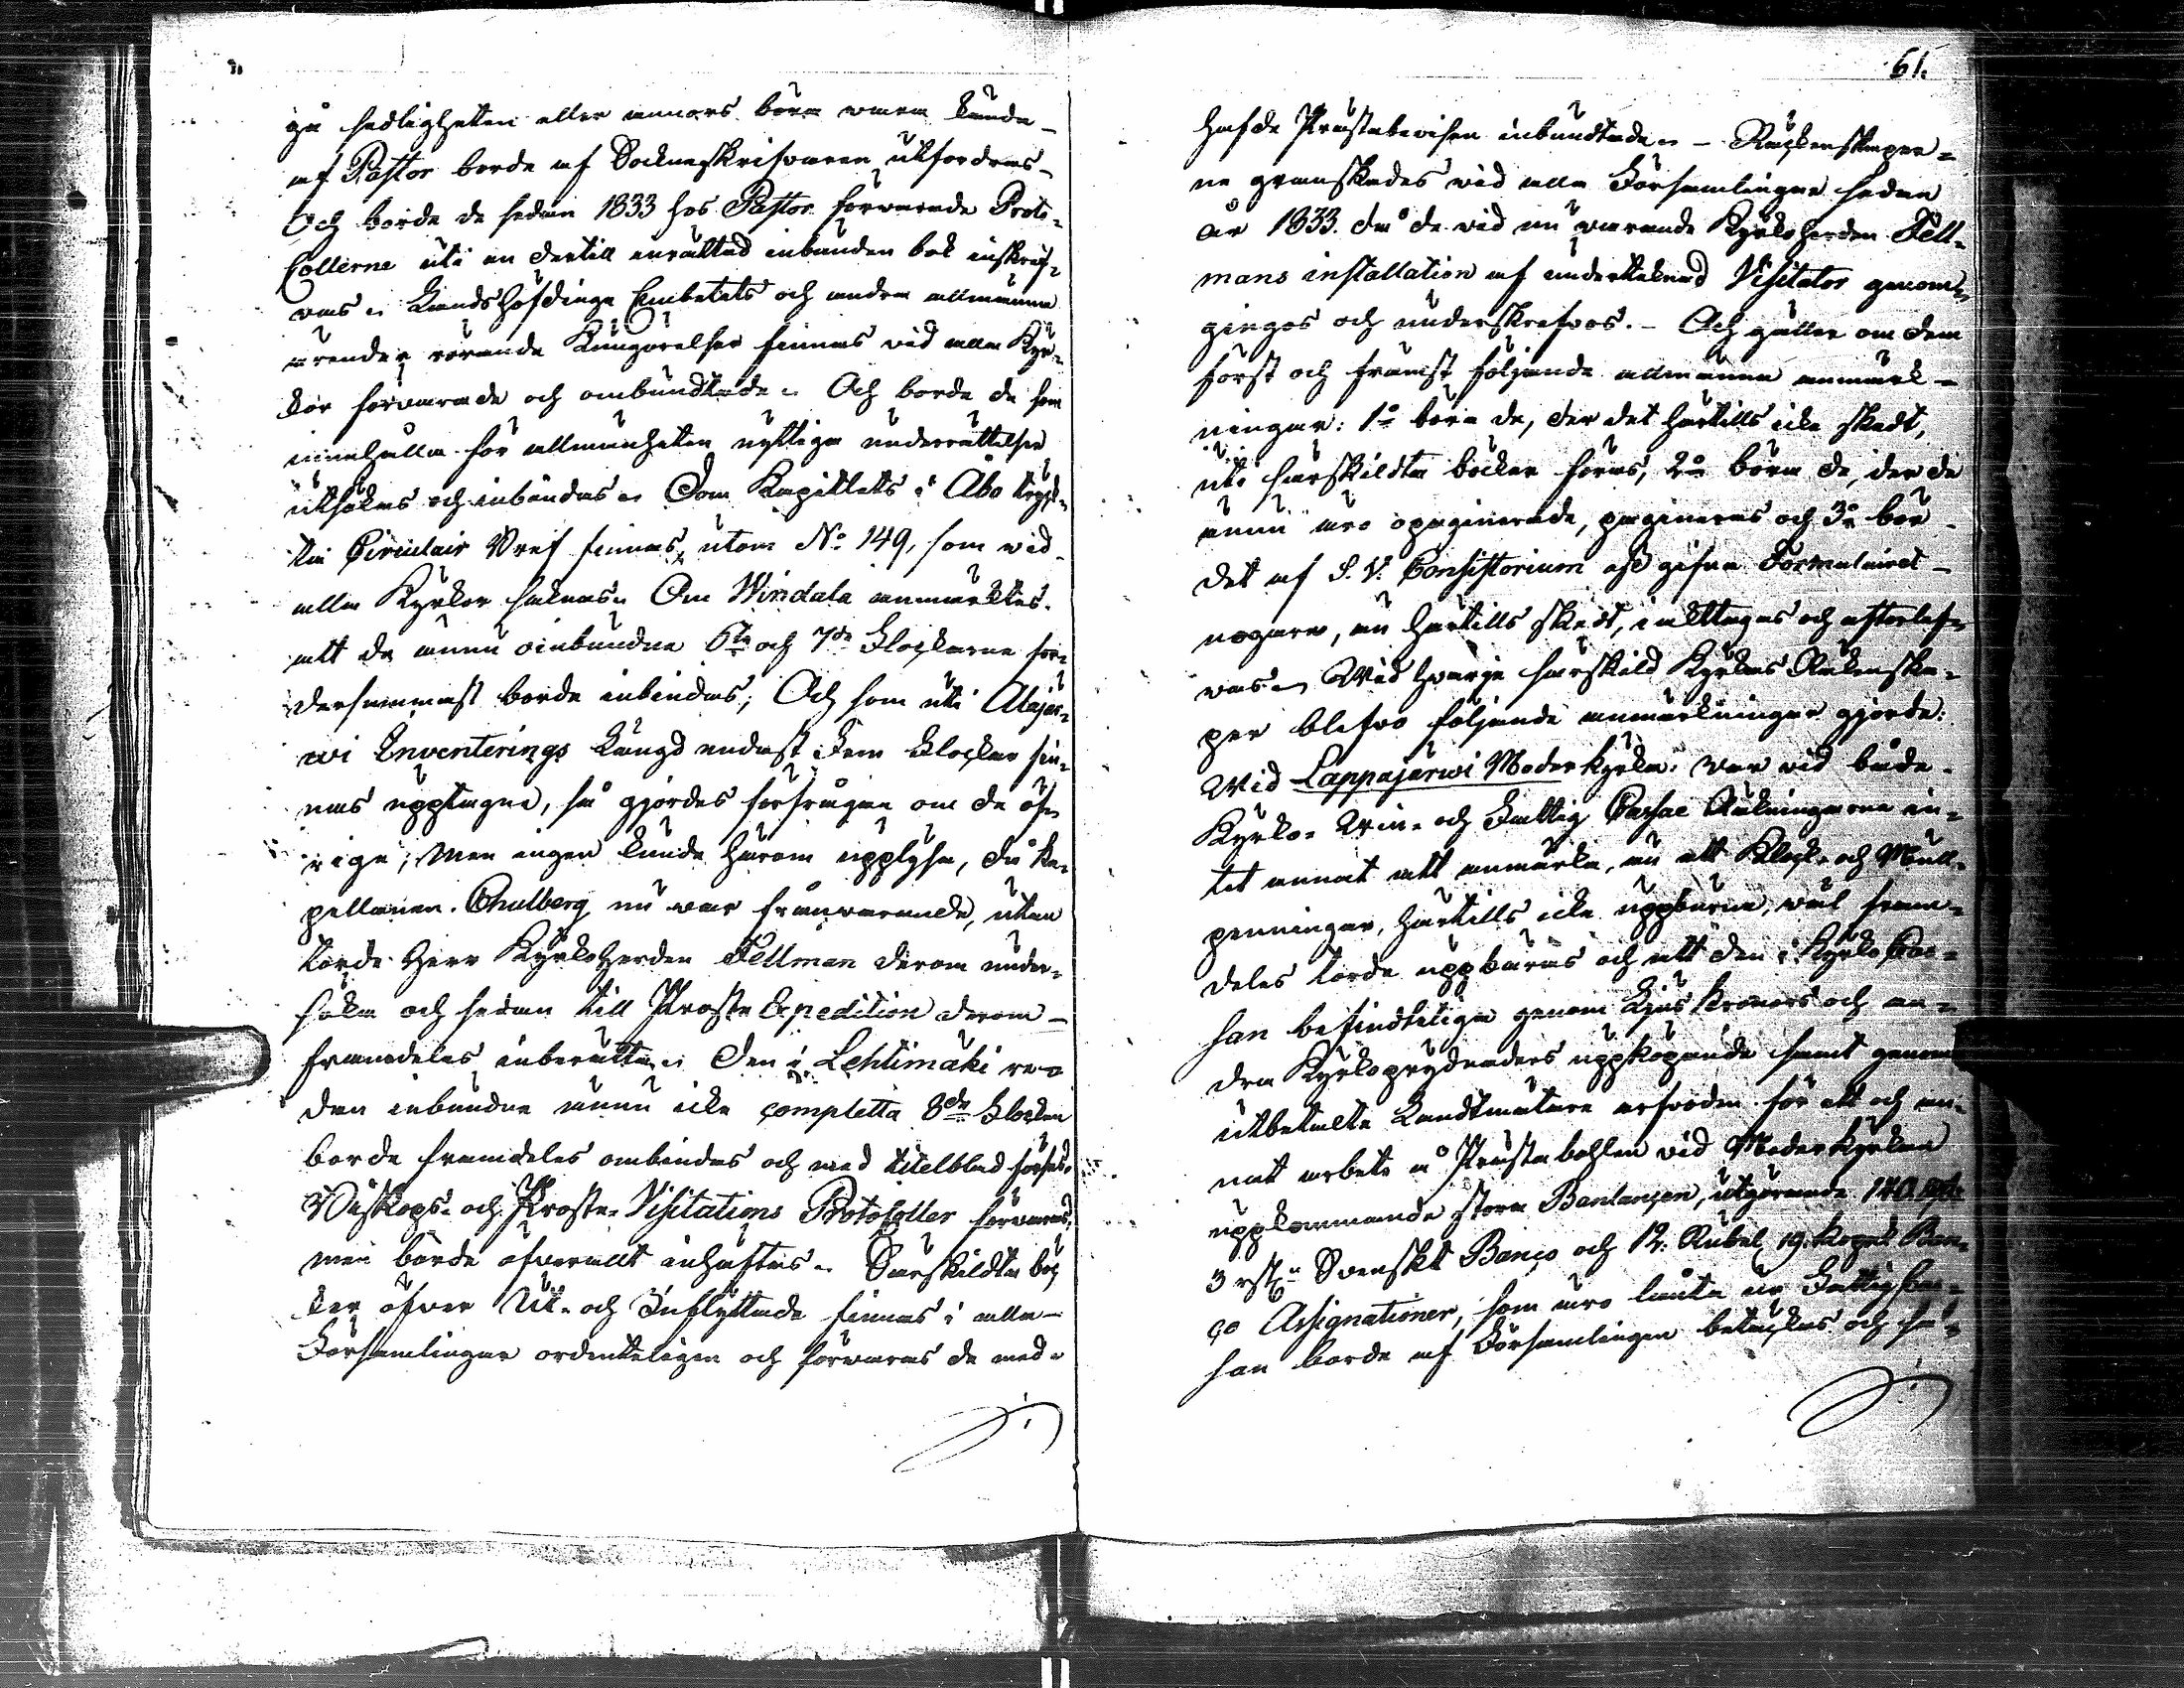 gå sedligheten eller annors böra vara kända
af Pastor borde af Sockneskrifvaren utfordras
Och borde de sedan 1833 hos Pastor förvarade Proto-
Collerne uti en dertill inrättad inbunden bok inskrif-
vas. Landshöfdinge Embetets och andra allmänna
ärender rörande Kungörelser finnas vid alla Kyr-
kor förvarade och ombundtade. Och borde de som
innehålla för allmänheten nyttiga underrättelser
utsökas och inbindas. Dom Kapitlets i Åbo tryck-
ta Circulair Bref finnas, utom No 149, som vid
alla Kyrkor saknas. Om Windala anmärktes
att de ännu oinbundna 6te och 7de Klockarna for-
dersammast borde inbindas; Och som uti Alajär-
wi Inventerings Längd endast Fem Klockar fin-
nas upptagna, så gjordes förfrågan om de öf-
rige; Men ingen kunde härom upplysa, då Ka-
pellanen Chulberg nu var frånvarande, utan
torde Herr Kyrkoherden Fellman derom under-
söka och sedan till Proste Expedition derom
framdeles inberätta. Den i Lehtimäki re-
dan inbundna ännu icke completta 8de Klockan
borde framdeles ombindas och med titelblad förses.
Biskops- och Proste-Visitations Protokoller förvaras,
men borde öfverallt inhäftas. Särskildta böc
ker öfver Ut- och Inflyttade finnas i alla
Församlingar ordenteligen och förvaras de med-
61.
hafde Prestabevisen inbundtade. – Räckenskaper-
ne granskades vid alla Församlingar sedan
år 1833. då de vid nu varande Kyrkoherden Fell-
mans installation af undertecknad Visitator genom-
gingos och underskrefvos. – Och gäller om dem
först och främst följande allmänna anmärk-
ningar: 1o böra de, der det härtills icke skedt,
uti särskildta böcker föras, 2o böra de, der de
ännu äro opaginerade, pagineras och 3o bör
det af S. V. Consistorium afgifna Formulairet
nogare, än härtills skedt, iakttagas och efterlef-
vas. Wid hvarje särskild Kyrkas Räkenska-
per blefvo följande anmärkningar gjorde:
Wid Lappajärwi Moderkyrka: Var vid både
Kyrko- Win- och Fattig Cassae Räkningarne in-
tet annat att anmärka, än att Klock- och Mull-
penningar, härtills icke uppburne, väl fram-
deles torde uppbäras och att den i Kyrko Cas-
san befindteliga genom Ljus Kronors och an-
dra Kyrkoprydnaders uppköpande samt genom
utbetalte Landtmätare arfvoden för ett och an-
nat arbete å Prestabohlen vid Moderkyrkan
uppkommande stora Banlancen, utgörande 140 Rdr
3 rst. Svenskt Banco och 12: Rubel 19: Kopek Ban-
co Assignationer, som äro lånta ur Fattigcas-
san borde af Församlingen betäckas och så-